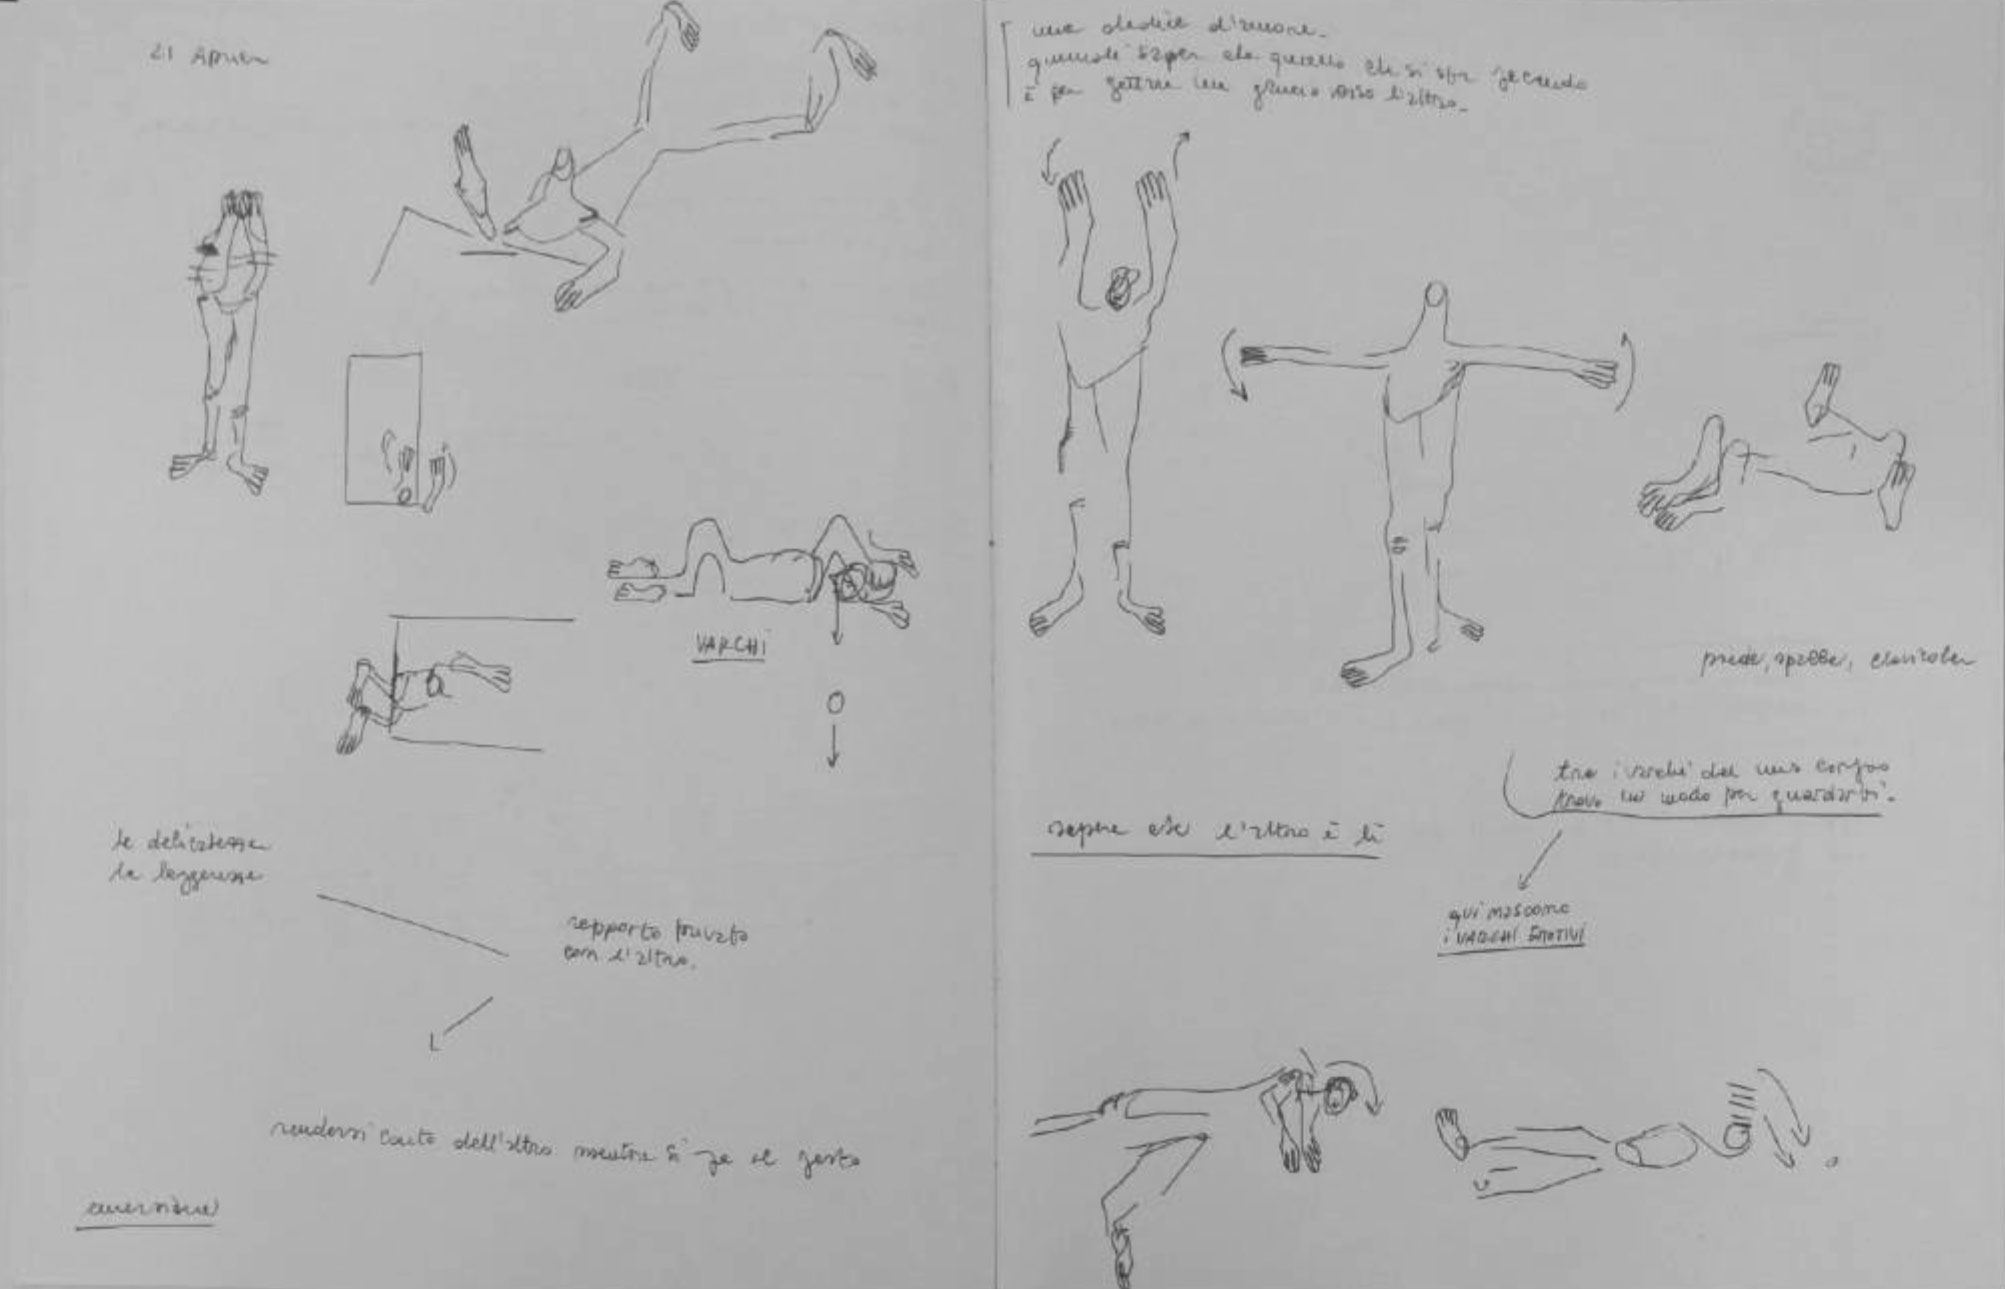 21 Aprile
VARCHI
la delicatezza
la leggerezza
rapporto privato
con l'altro.
rendersi conto dell'altro mentre si fa il gesto
una dedica d'amore.
quindi saper che quello che si sta facendo
è per gettare un verso l'altro.
piede, spalla, clavicola
tra i varchi del mio corpo
trovo un modo per guardarti.
sapere che l'altro è lì
qui nascono
i VARCHI EMOTIVI